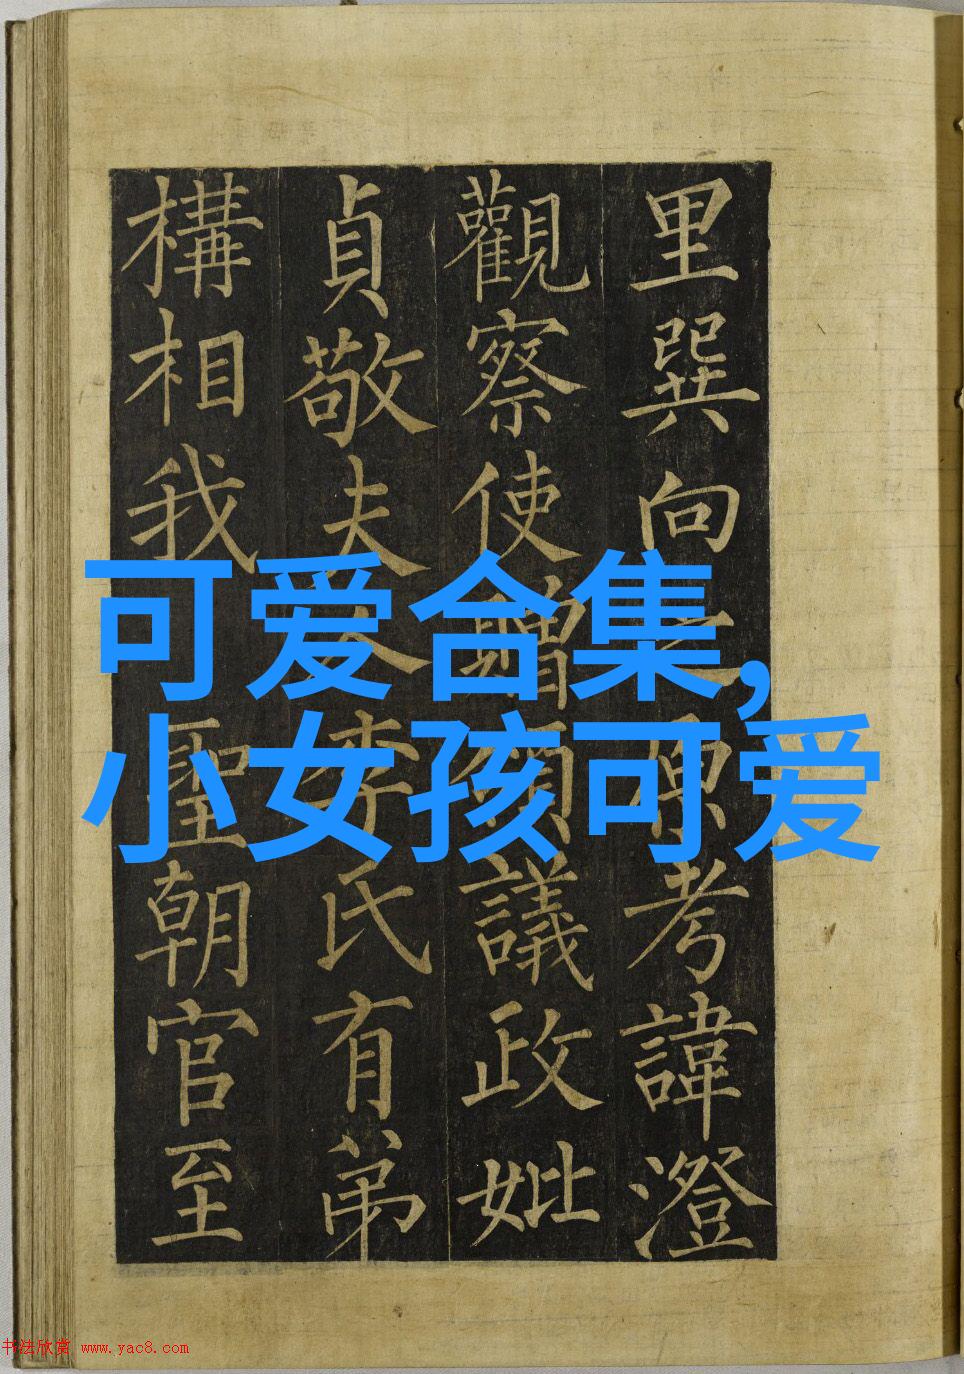 里巽向之原考諱澄
觀察使贈領議政妣
貞敬夫人李氏有弟
構相我聖朝官至
可爱合集,
小女孩可爱
书法欣赏 www.yac8.com